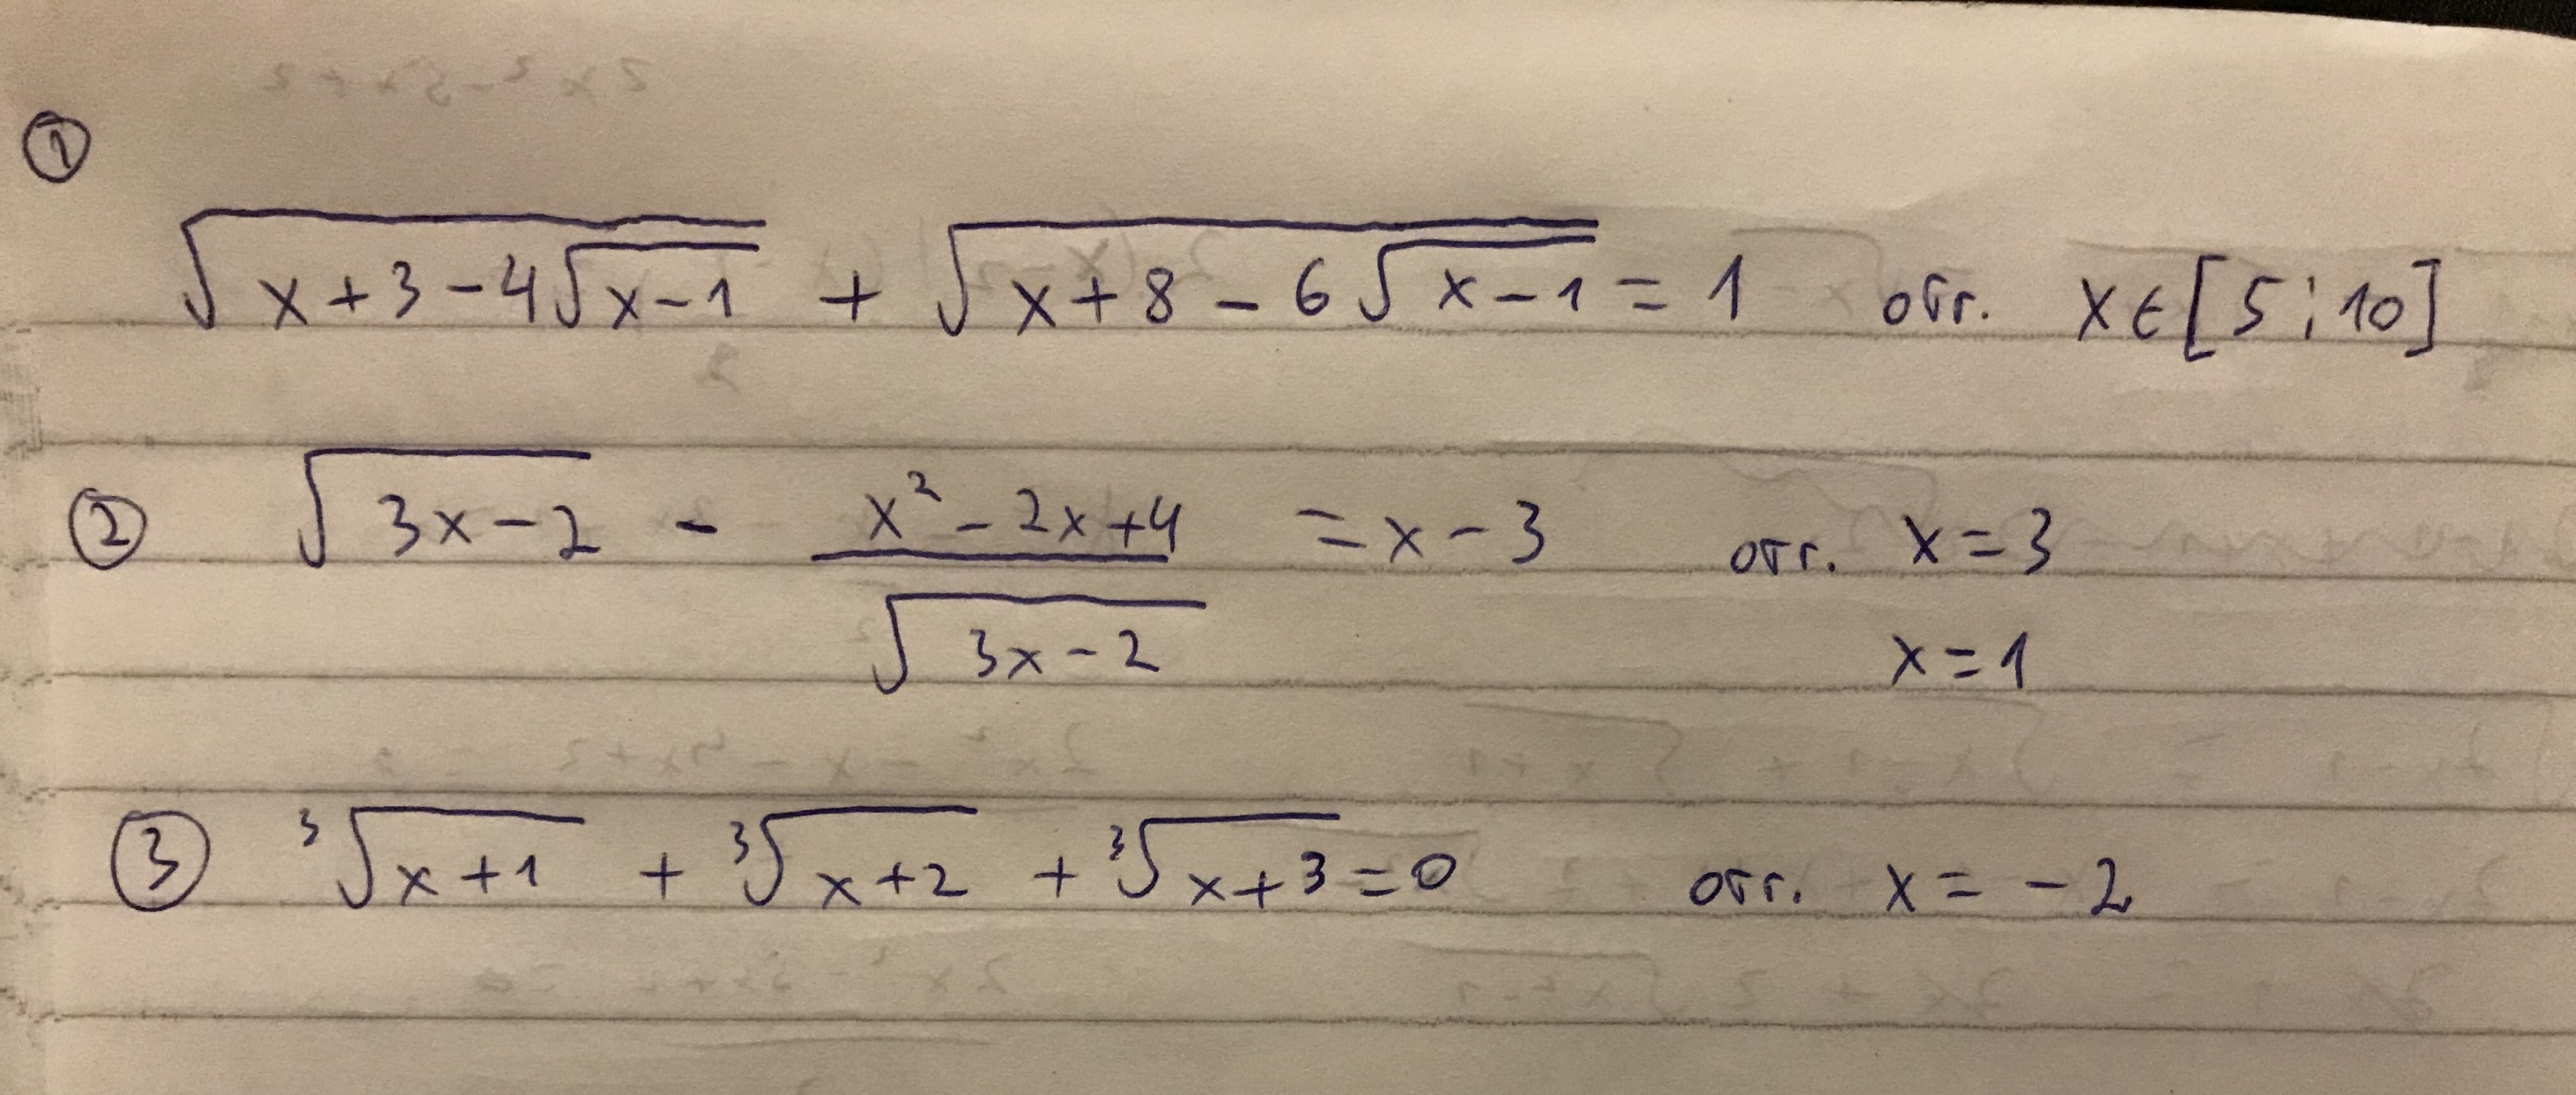 ①
√(x+3-4√(x-1)) + √(x+8-6√(x-1)) = 1 отг. x∈[5;10]
② √(3x-2) - (x²-2x+4)/√(3x-2) = x-3 отг. x=3
x=1
③ ³√(x+1) + ³√(x+2) + ³√(x+3) = 0 отг. x=-2